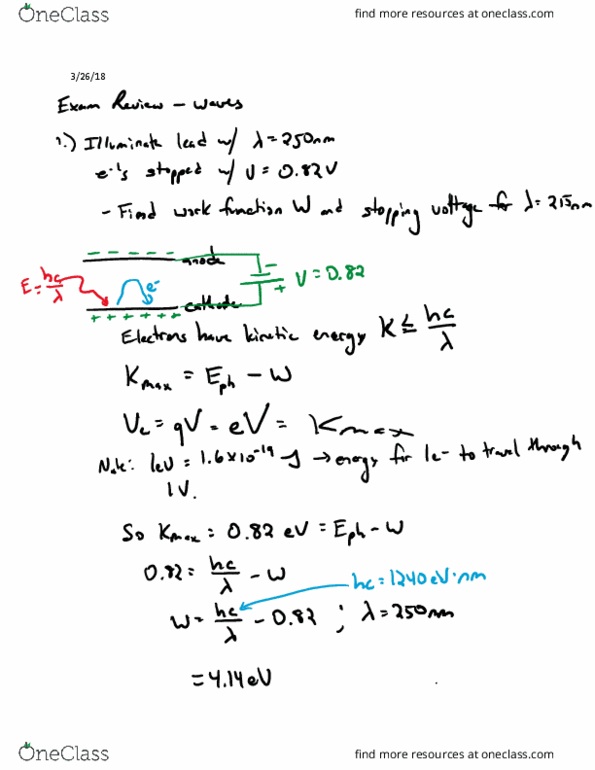 OneClass
find more resources at oneclass.com
3/26/18
Exam Review - waves
1.) Illuminate lead w/ λ=250nm
e⁻'s stopped w/ V = 0.82V
- Find work function W and stopping voltage for λ=215nm
- - - - - -
anode
E=hc/λ
e⁻
- + V=0.82
cathode
+ + + + + +
Electrons have kinetic energy K ≤ hc/λ
Kmax = Eph - W
Ue = qV = eV = Kmax
Note: 1eV = 1.6×10⁻¹⁹ J → energy for 1e- to travel through
1V.
So Kmax = 0.82 eV = Eph - W
0.82 = hc/λ - W
hc = 1240 eV·nm
W = hc/λ - 0.82 ; λ=250nm
= 4.14 eV
OneClass
find more resources at oneclass.com